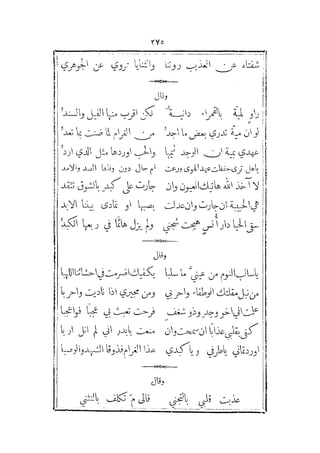 ٢٧٥
شفتاه عن العذيب روتا والثنايا تروي عن الجوهري
وقال
دار لمية بالقمراء دانية لكن اقرب منها الفيل والسند
لو ان مية تدري بعض ما اجد من الغرام لما ضنت بما تعد
عهدي بمية ان الوجد والحب اوردها مثل الذي ارد
يا هل ترى حفظت عهد الهوى ورعت ام حال دون وفاها الصد والامد
لا آخذ الله هاتيك العيون وان جارت على كبد بالشوق تتقد
هي الحبيبة ان جارت وان عدلت بصبها او تمادى بيننا الابد
سقى الحيا دار أنس هيجت شجني ولم يزل هائمًا في ربعها الكبد
وقال
يا سالب النوم من عينيَّ ما سلبا يكفيك اضرمت في احشائنا اللهبا
من نبل مقلتك الوطفاء واحربي ومن مجيري اذا ناديت واحربا
علمت اني اخو وجد وذو شغف فرحت تعبث بي عجبًا فواعجبا
كفى بقلبي عذابًا ان سمحت وان منعت يا بدر اني لم انل اربا
اوردتماني يا طرفي ويا كبدي هذا الغرام فذوقا السهد والوصبا
وقال
عذبت قلبي بالتجني فالى مَ تكلف بالتثني